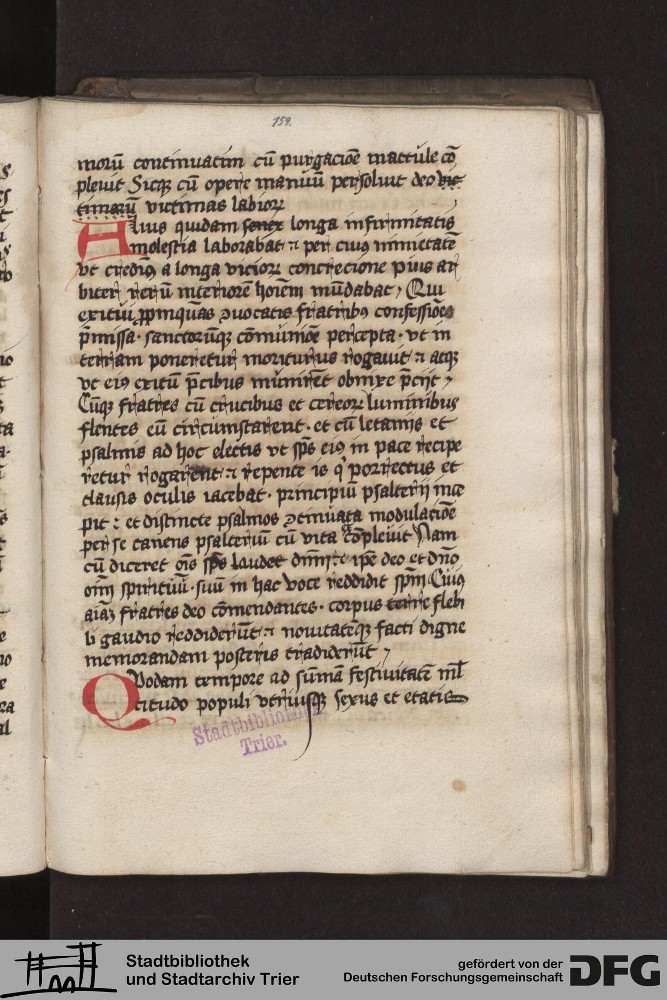 159.
morū continuatim cū purgacōe mattule cō
pleuit Sicqꝫ cū opere manuū persoluit deo vic
timarū victimas labioꝝ
Alius quidam senex longa infirmitatis
molestia laborabat ⁊ per cuiꝰ inmietatē
vt credimꝰ a longa vicioꝝ concrecione pius ar
biter rerū interiorē hoīem mūdabat, Qui
exitui ꝓpinquās ꝯuocatis fratribꝰ confessiōe
p̄missa · sanctorūqꝫ cōmuniōe percepta · vt in
terram poneretur moriturus rogauit ⁊ atqꝫ
vt eiꝰ exitū p̄cibus munirēt obnixe p̄cijt,
Cūqꝫ fratres cū crucibus et cereoꝝ luminibus
flentes eū circūstarent · et cū letanijs et
psalmis ad hoc electis vt sp̄s eiꝰ in pace recipe
retur rogarent ⁊ repente is qͥ porrectus et
clausis oculis iacebat · principiū psalterij ince
pit : et distincte psalmos ꝯtinuata modulaciōe
per se canens psalteriū cū vita cōpleuit Nam
cū diceret oīs sp̄s laudet dn̄m : ip̄e deo et dn̄o
oīm spirituū · suū in hac voce reddidit sp̄m Cuiꝰ
aīaꝫ fratres deo cōmendantes · corpus terre flebi
li gaudio reddiderūt ⁊ nouitatēqꝫ facti digne
memorandam posteris tradiderūt,
Quodam tempore ad sūmā festiuitatē ml̄
titudo populi vtriusqꝫ sexus et etatis
Stadtbibliothek
Trier.
Stadtbibliothek
und Stadtarchiv Trier
gefördert von der
Deutschen Forschungsgemeinschaft
DFG